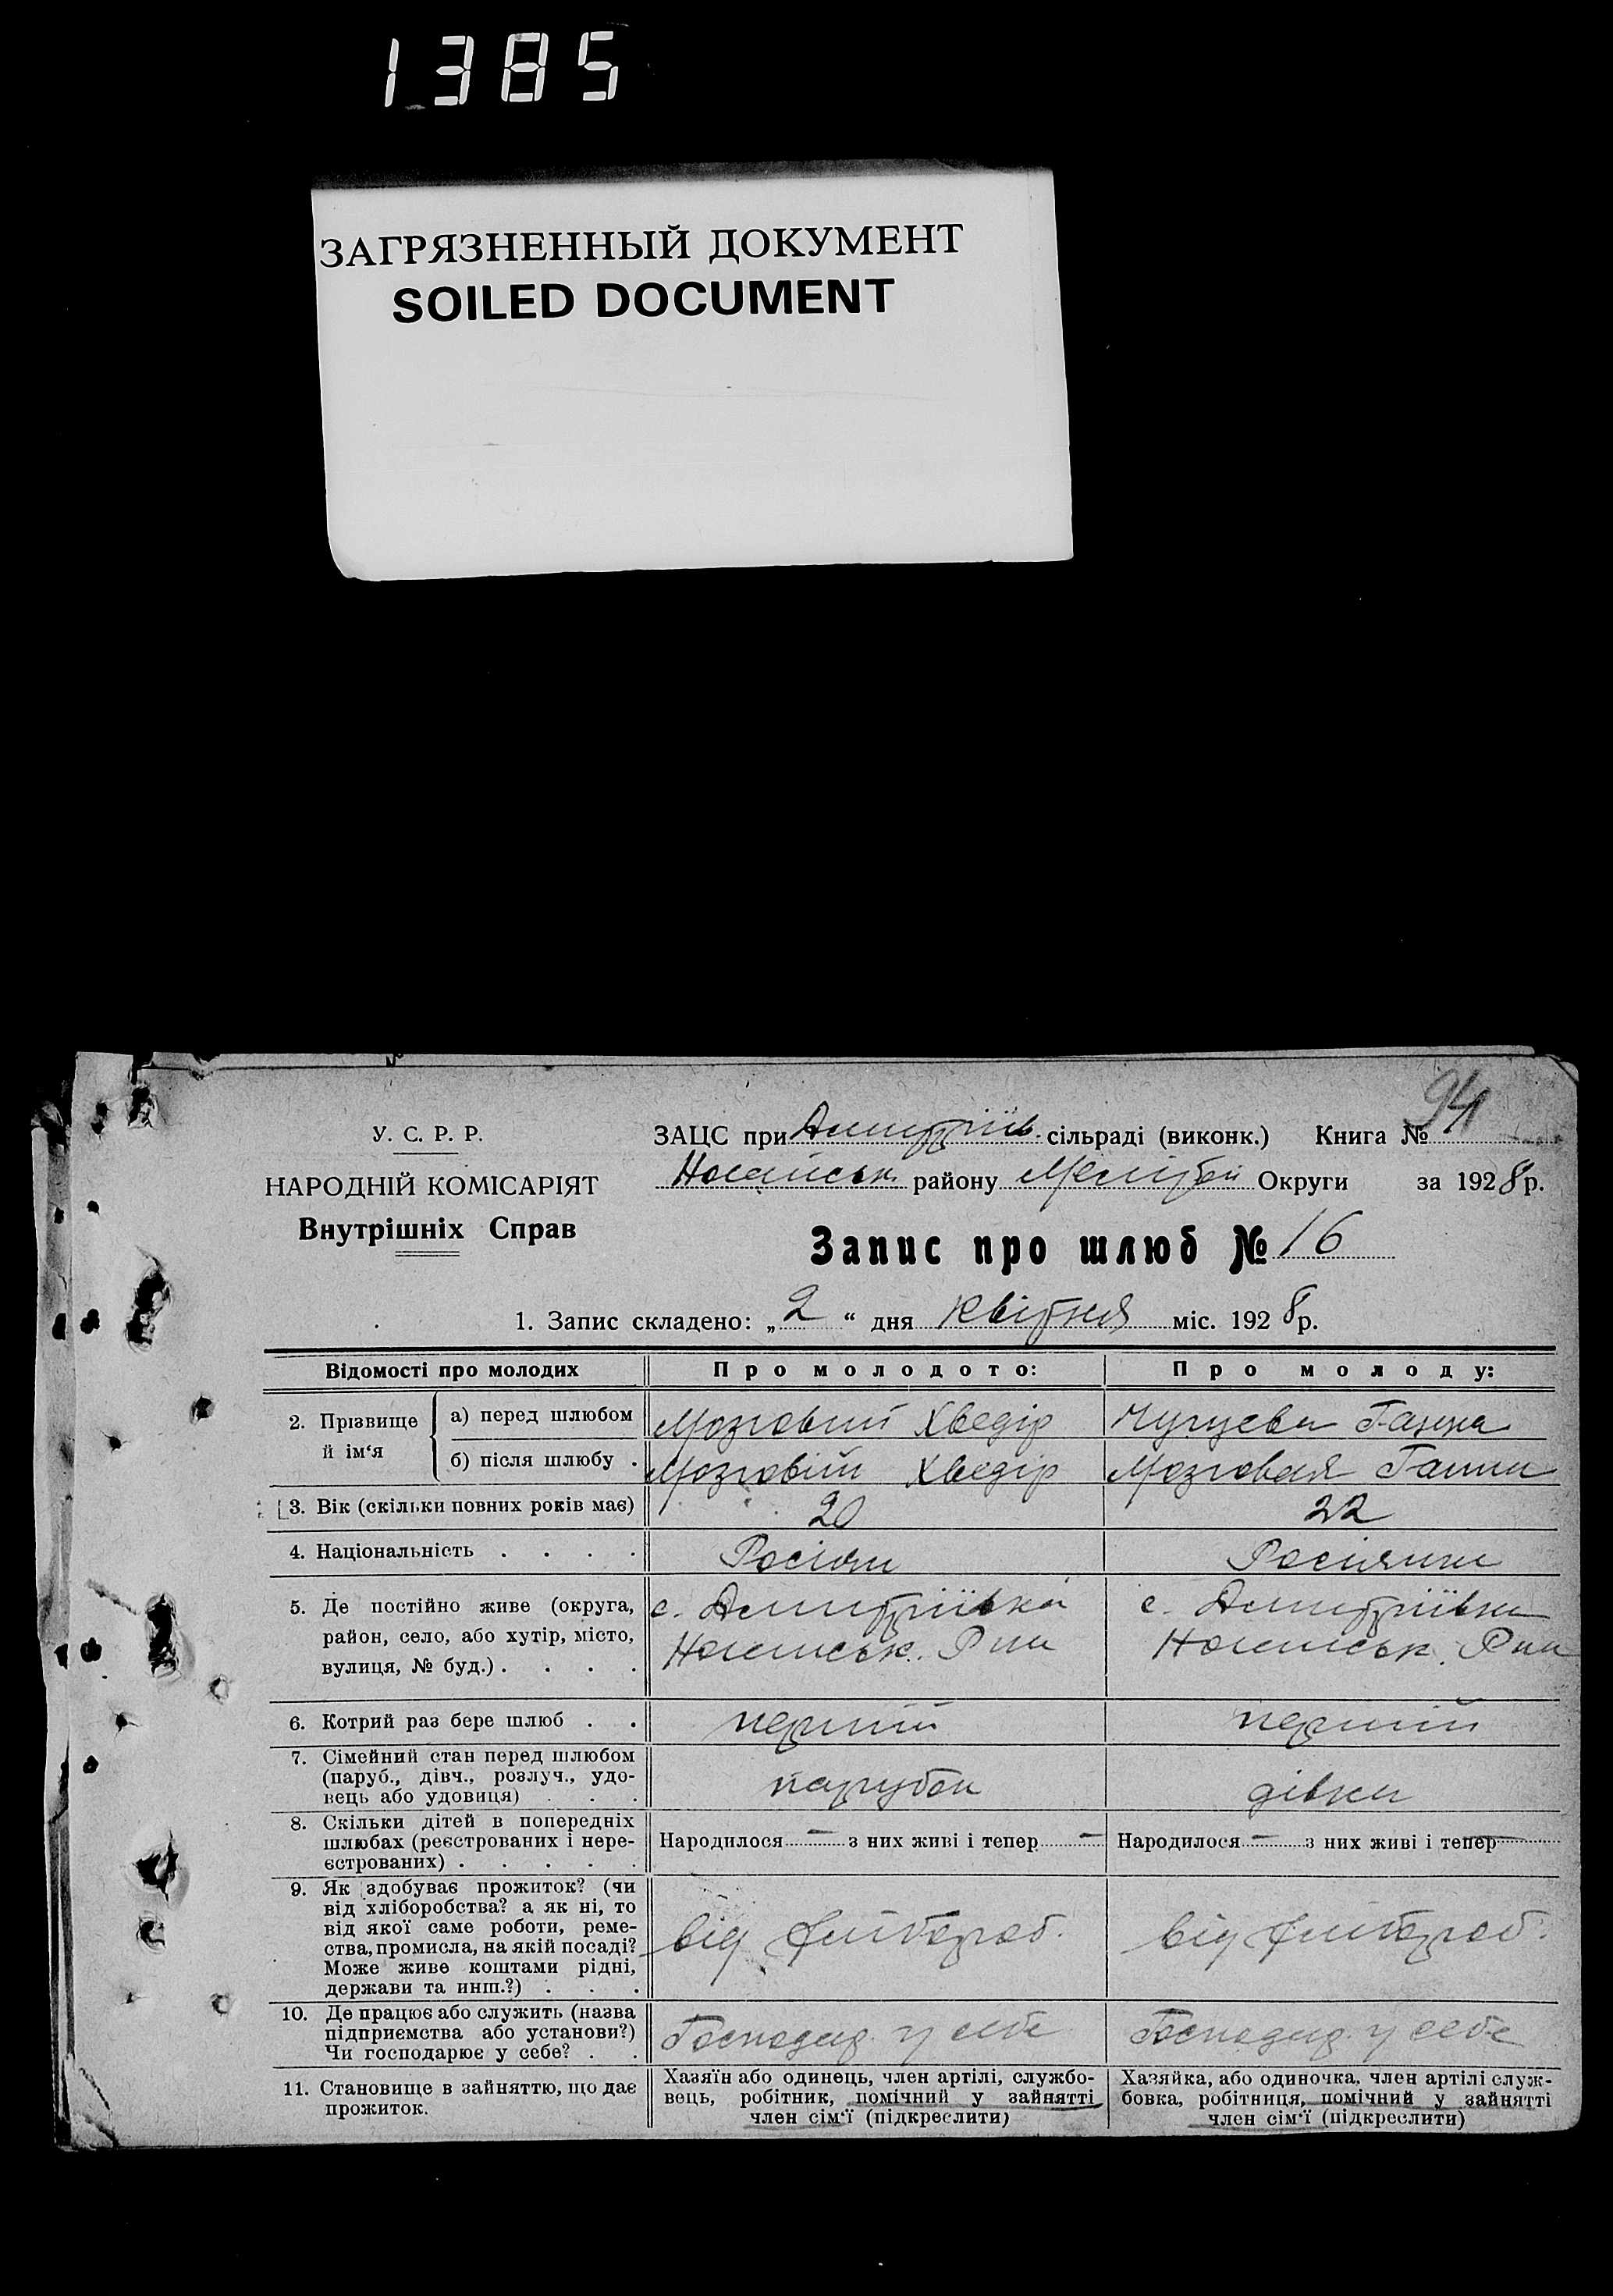 1385
ЗАГРЯЗНЕННЫЙ ДОКУМЕНТ
SOILED DOCUMENT
94
У. С. Р. Р.
НАРОДНІЙ КОМІСАРІЯТ
Внутрішніх Справ
ЗАЦС при Дмитріїв. сільраді (виконк.) Книга №
Ногайськ. району Мелітоп Округи за 1928 р.
Запис про шлюб № 16
1. Запис складено: „2“ дня квітня міс. 1928 р.
Відомості про молодих
Про молодого:
Про молоду:
2. Прізвище й ім‘я
а) перед шлюбом
Мозговий Хведір
Чугуева Ганна
б) після шлюбу .
Мозговій Хведір
Мозговая Ганна
3. Вік (скільки повних років має)
20
22
4. Національність . . . .
Росіян
Росіянка
5. Де постійно живе (округа,
район, село, або хутір, місто,
вулиця, № буд.) . . . .
с. Дмитріївка
Ногайськ. Р на
с. Дмитріївка
Ногайськ. Р на
6. Котрий раз бере шлюб . .
перший
перший
7. Сімейний стан перед шлюбом
(паруб., дівч., розлуч., удо-
вець або удовиця) . . .
парубок
дівка
8. Скільки дітей в попередніх
шлюбах (реєстрованих і нере-
єстрованих) . . . . .
Народилося — з них живі і тепер —
Народилося — з них живі і тепер —
9. Як здобуває прожиток? (чи
від хліборобства? а як ні, то
від якої саме роботи, реме-
ства, промисла, на якій посаді?
Може живе коштами рідні,
держави та инш.?) . . .
від хлібороб.
від хлібороб.
10. Де працює або служить (назва
підприємства або установи?)
Чи господарює у себе? . .
Господар. у себе
Господар. у себе
11. Становище в зайняттю, що дає
прожиток.
Хазяїн або одинець, член артілі, службо-
вець, робітник, помічний у зайнятті
член сім‘ї (підкреслити)
Хазяйка, або одиночка, член артілі служ-
бовка, робітниця, помічний у зайнятті
член сім‘ї (підкреслити)